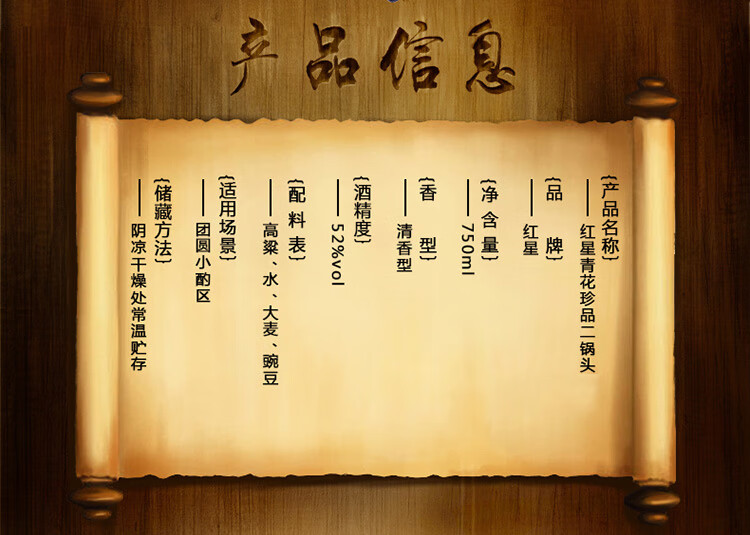 产品信息
{产品名称}
——红星青花珍品二锅头
{品牌}
——红星
{净含量}
——750ml
{香型}
——清香型
{酒精度}
——52%vol
{配料表}
——高粱、水、大麦、豌豆
{适用场景}
——团圆小酌区
{储藏方法}
——阴凉干燥处常温贮存